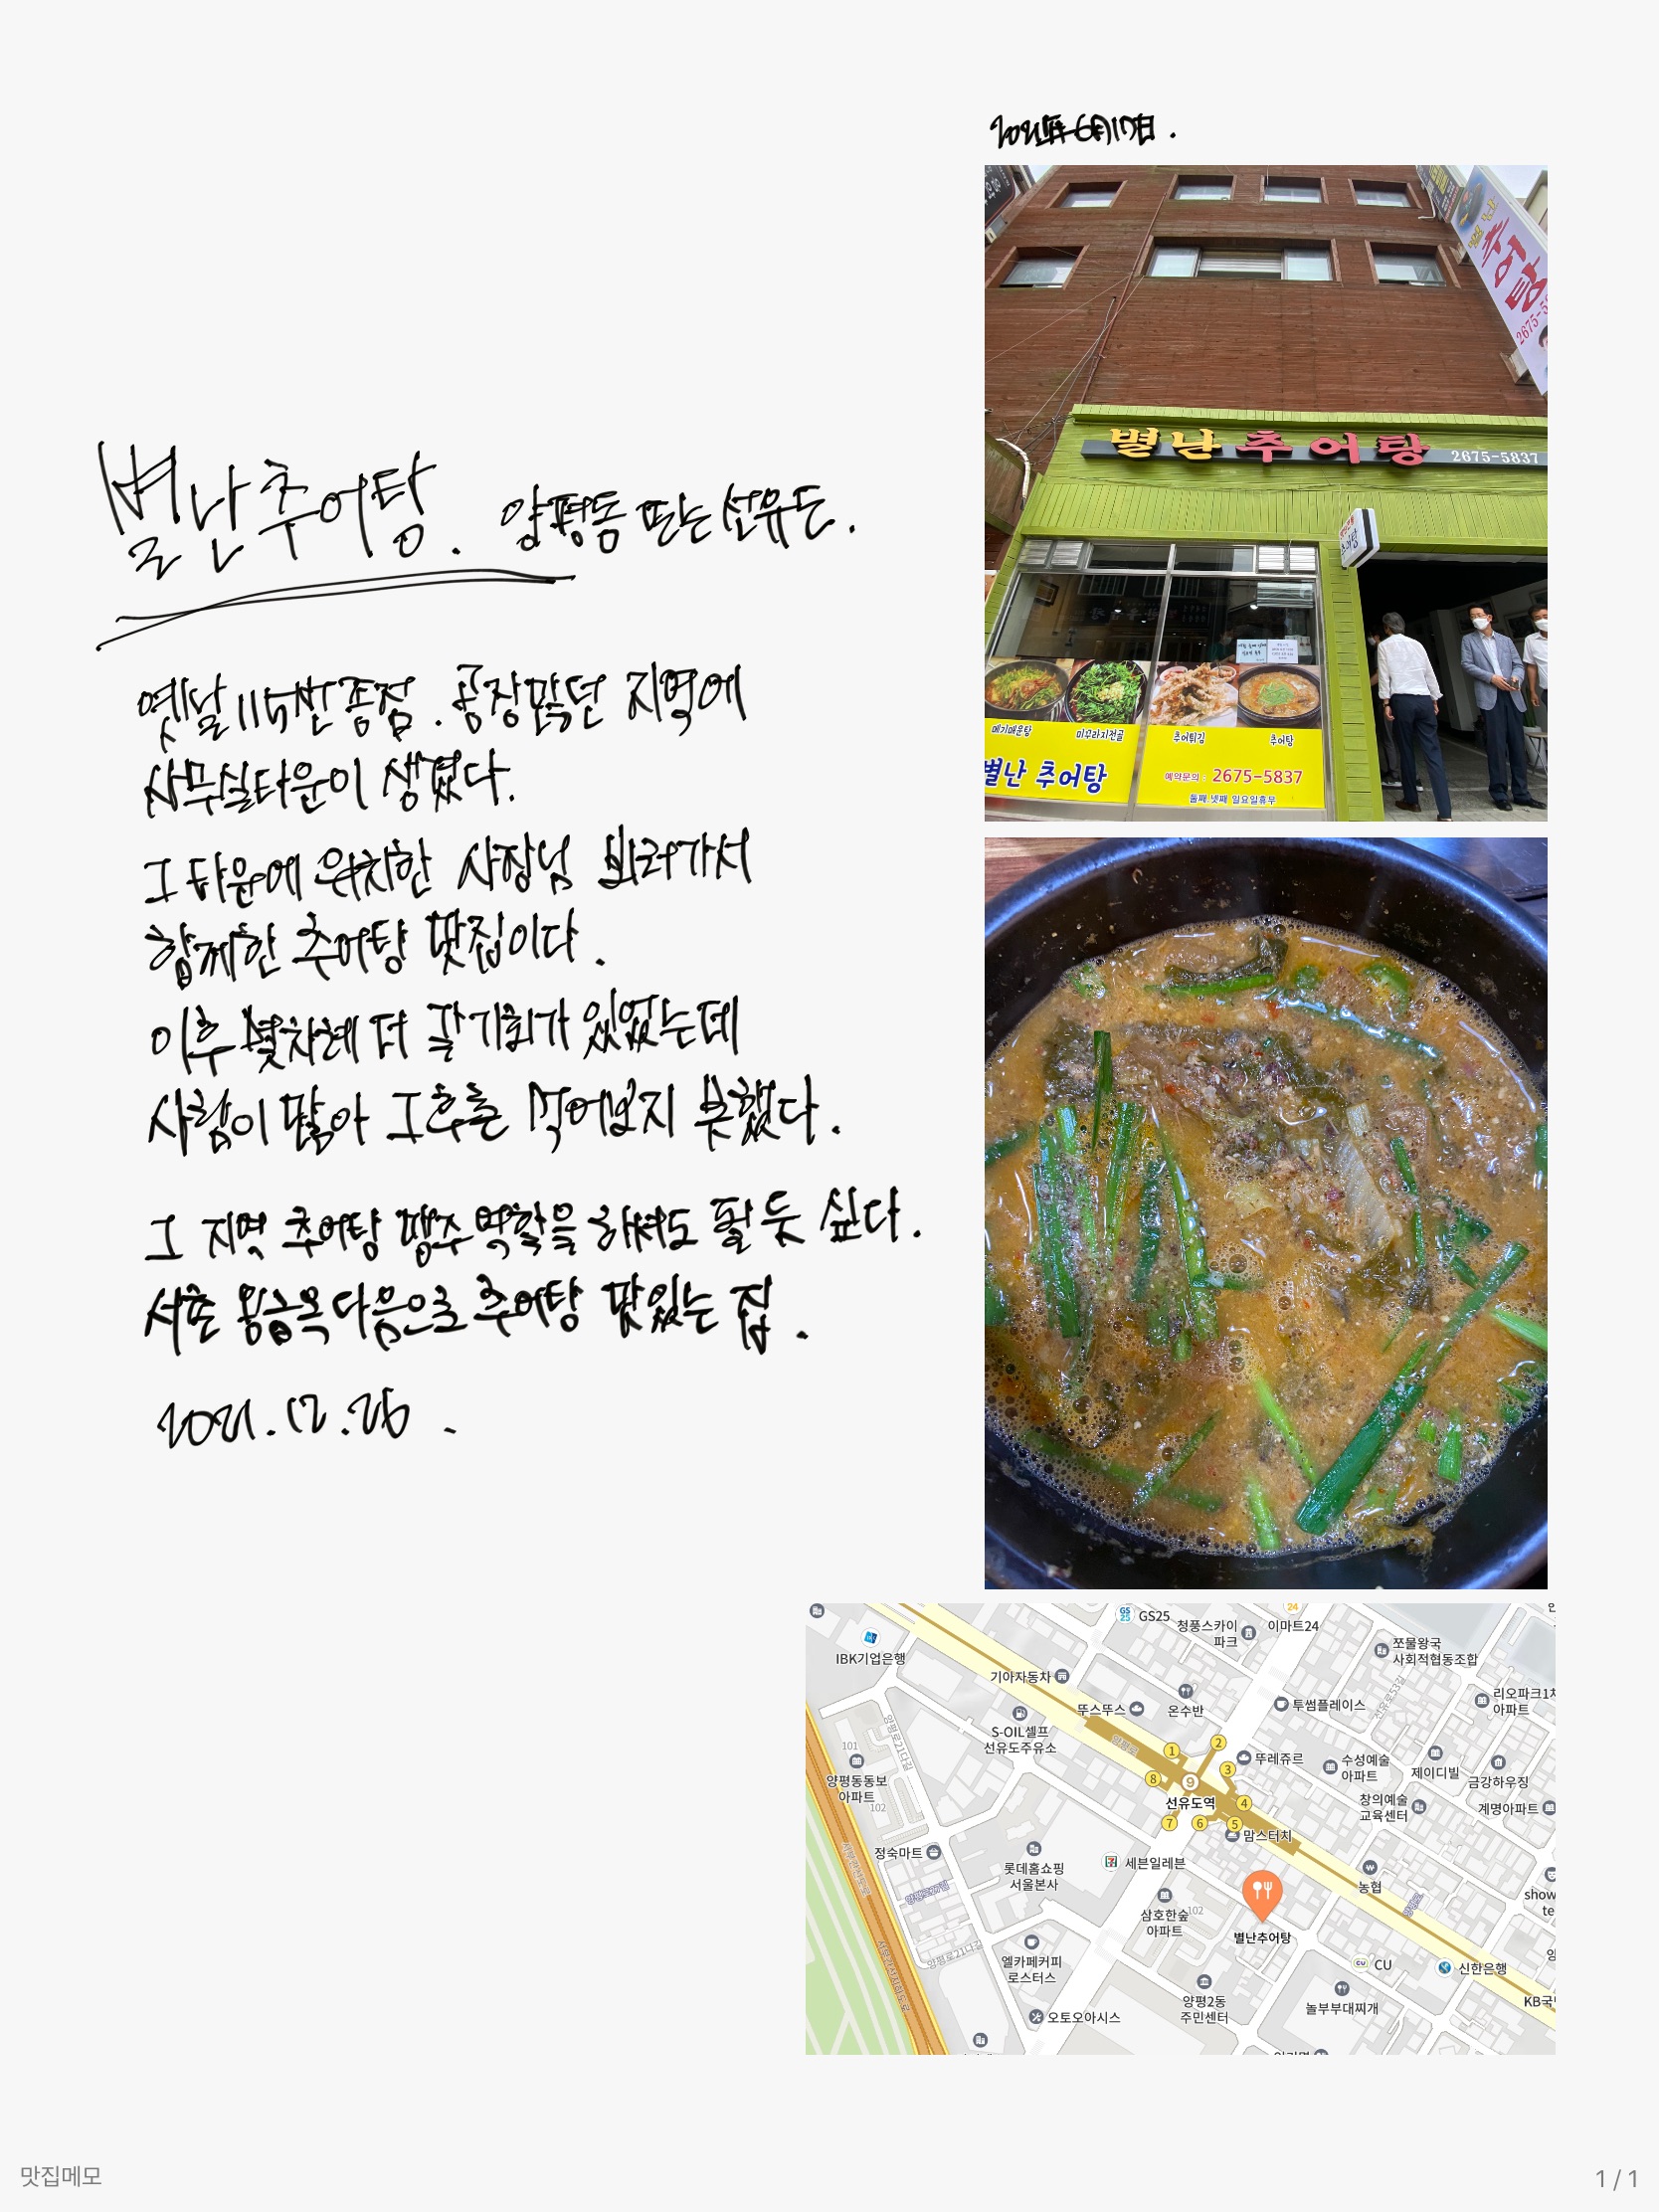 2021年 6月17日.
별난 추어탕. 양평동 또는 선유도.
옛날 115번 종점. 공장많던 지역에
사무실타운이 생겼다.
그 타운에 위치한 사장님 뵈러가서
함께한 추어탕 맛집이다.
이후 몇차례 더 갈기회가 있었는데
사람이 많아 그후론 먹어보지 못했다.
그 지역 추어탕 맹주역할을 해도 될 듯 싶다.
서촌 용금옥 다음으로 추어탕 맛있는 집.
2021.12.26.
별난 추어탕
2675-5837
별난 추어탕 2675-5
추어탕
메기매운탕
미꾸라지전골
추어튀김
추어탕
별난 추어탕
예약문의 : 2675-5837
둘째,넷째 일요일휴무
GS25
GS25
청풍스카이
파크
24
이마트24
IBK기업은행
쪼물왕국
사회적협동조합
기아자동차
뚜스뚜스
온수반
투썸플레이스
선유로53길
리오파크1차
아파트
S-OIL셀프
선유도주유소
양평로21다길
양평로
101
양평동동보
아파트
102
1
2
3
4
5
6
7
8
9
선유도역
뚜레쥬르
수성예술
아파트
제이디빌
금강하우징
창의예술
교육센터
계명아파트
맘스터치
정숙마트
롯데홈쇼핑
서울본사
세븐일레븐
농협
양평로
show
te
삼호한숲
아파트
102
별난추어탕
양평로21나길
엘카페커피
로스터스
CU
신한은행
양평2동
주민센터
놀부부대찌개
KB국민
오토오아시스
맛집메모
1 / 1